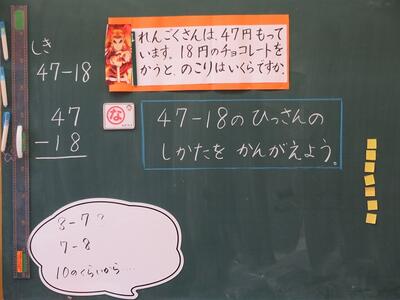 しき
47-18
47
-18
れんごくさんは、47円もって
います。18円のチョコレートを
かうと、のこりはいくらですか。
な
47-18のひっさんの
しかたをかんがえよう。
8-7?
7-8
10のくらいから…